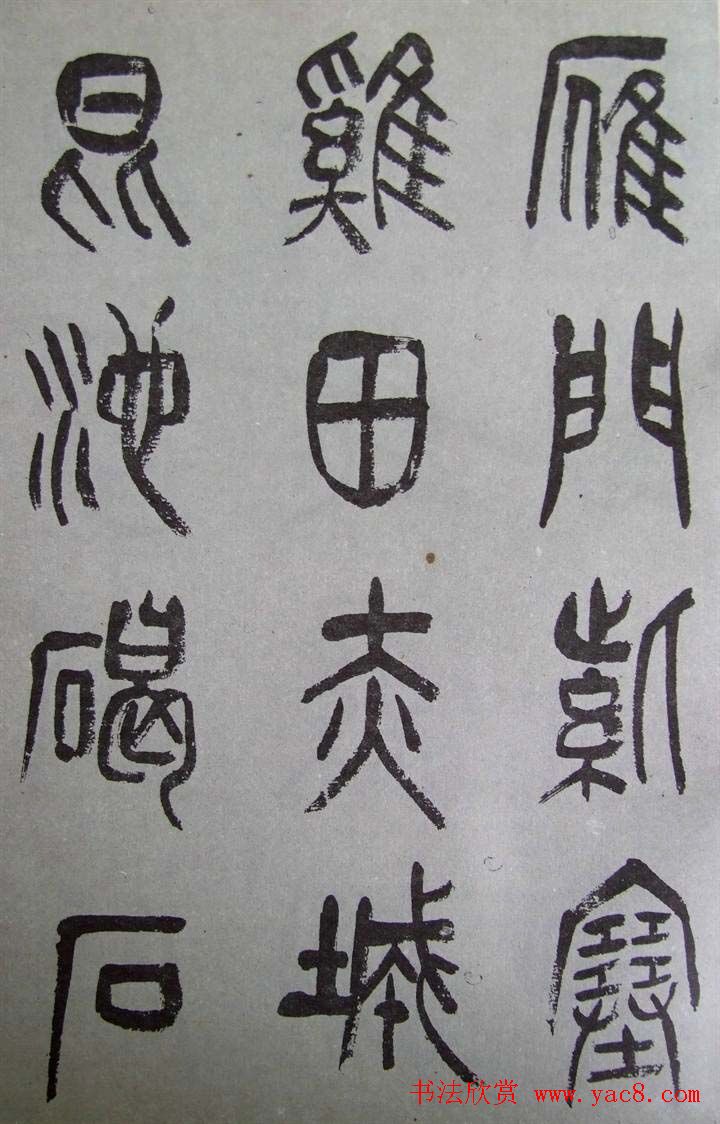 雁門紫塞
雞田赤城
昆池碣石
书法欣赏 www.yac8.com